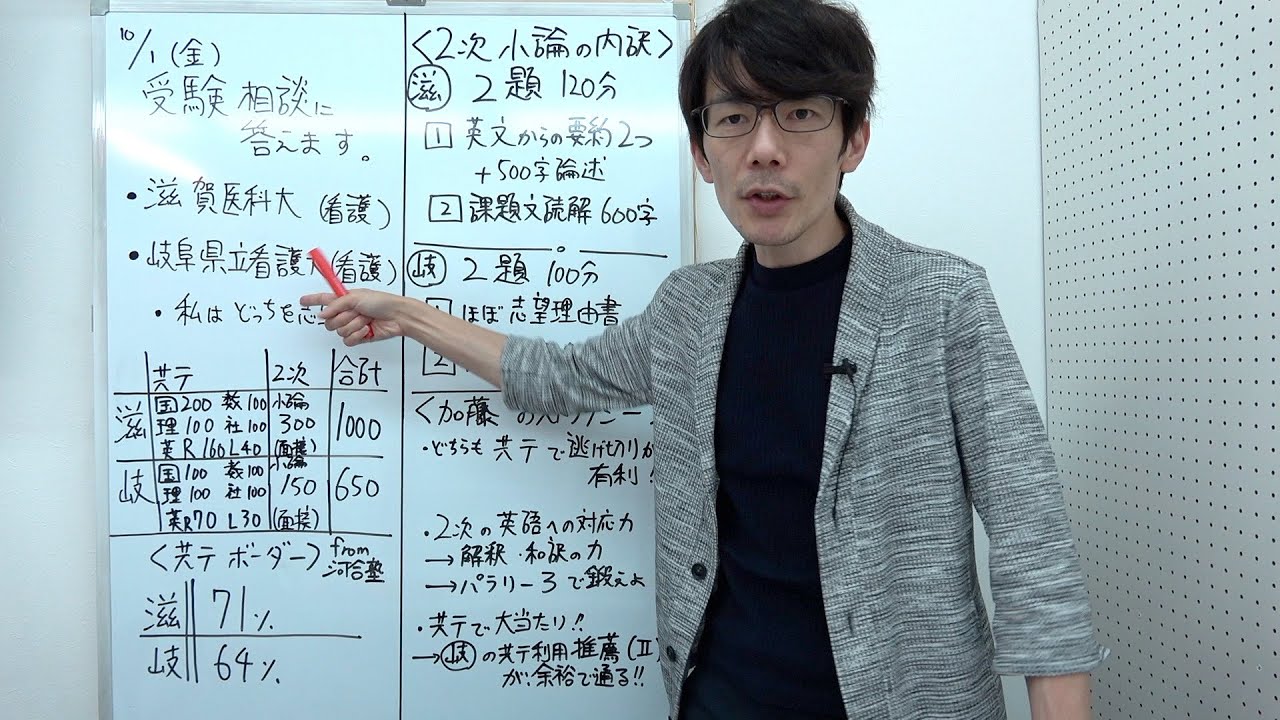 10/1(金)
受験相談に
答えます。
・滋賀医科大(看護)
・岐阜県立看護大(看護)
・私はどっちを志
共テ 2次 合計
滋 国200 数100 小論 1000
理100 社100 300
英R160 L40 (面接)
岐 国100 数100 小論 650
理100 社100 150
英R70 L30 (面接)
〈共テボーダー〉from
河合塾
滋 71%
岐 64%
〈2次小論の内訳〉
滋 2題 120分
1 英文からの要約2つ
+500字論述
2 課題文読解600字
岐 2題 100分
1 ほぼ志望理由書
2
〈加藤の
・どちらも共テで逃げ切りが
有利!
・2次の英語への対応力
→解釈・和訳の力
→パラリー3で鍛えよ
・共テで大当たり!!
→岐の共テ利用推薦(II)
が余裕で通る!!